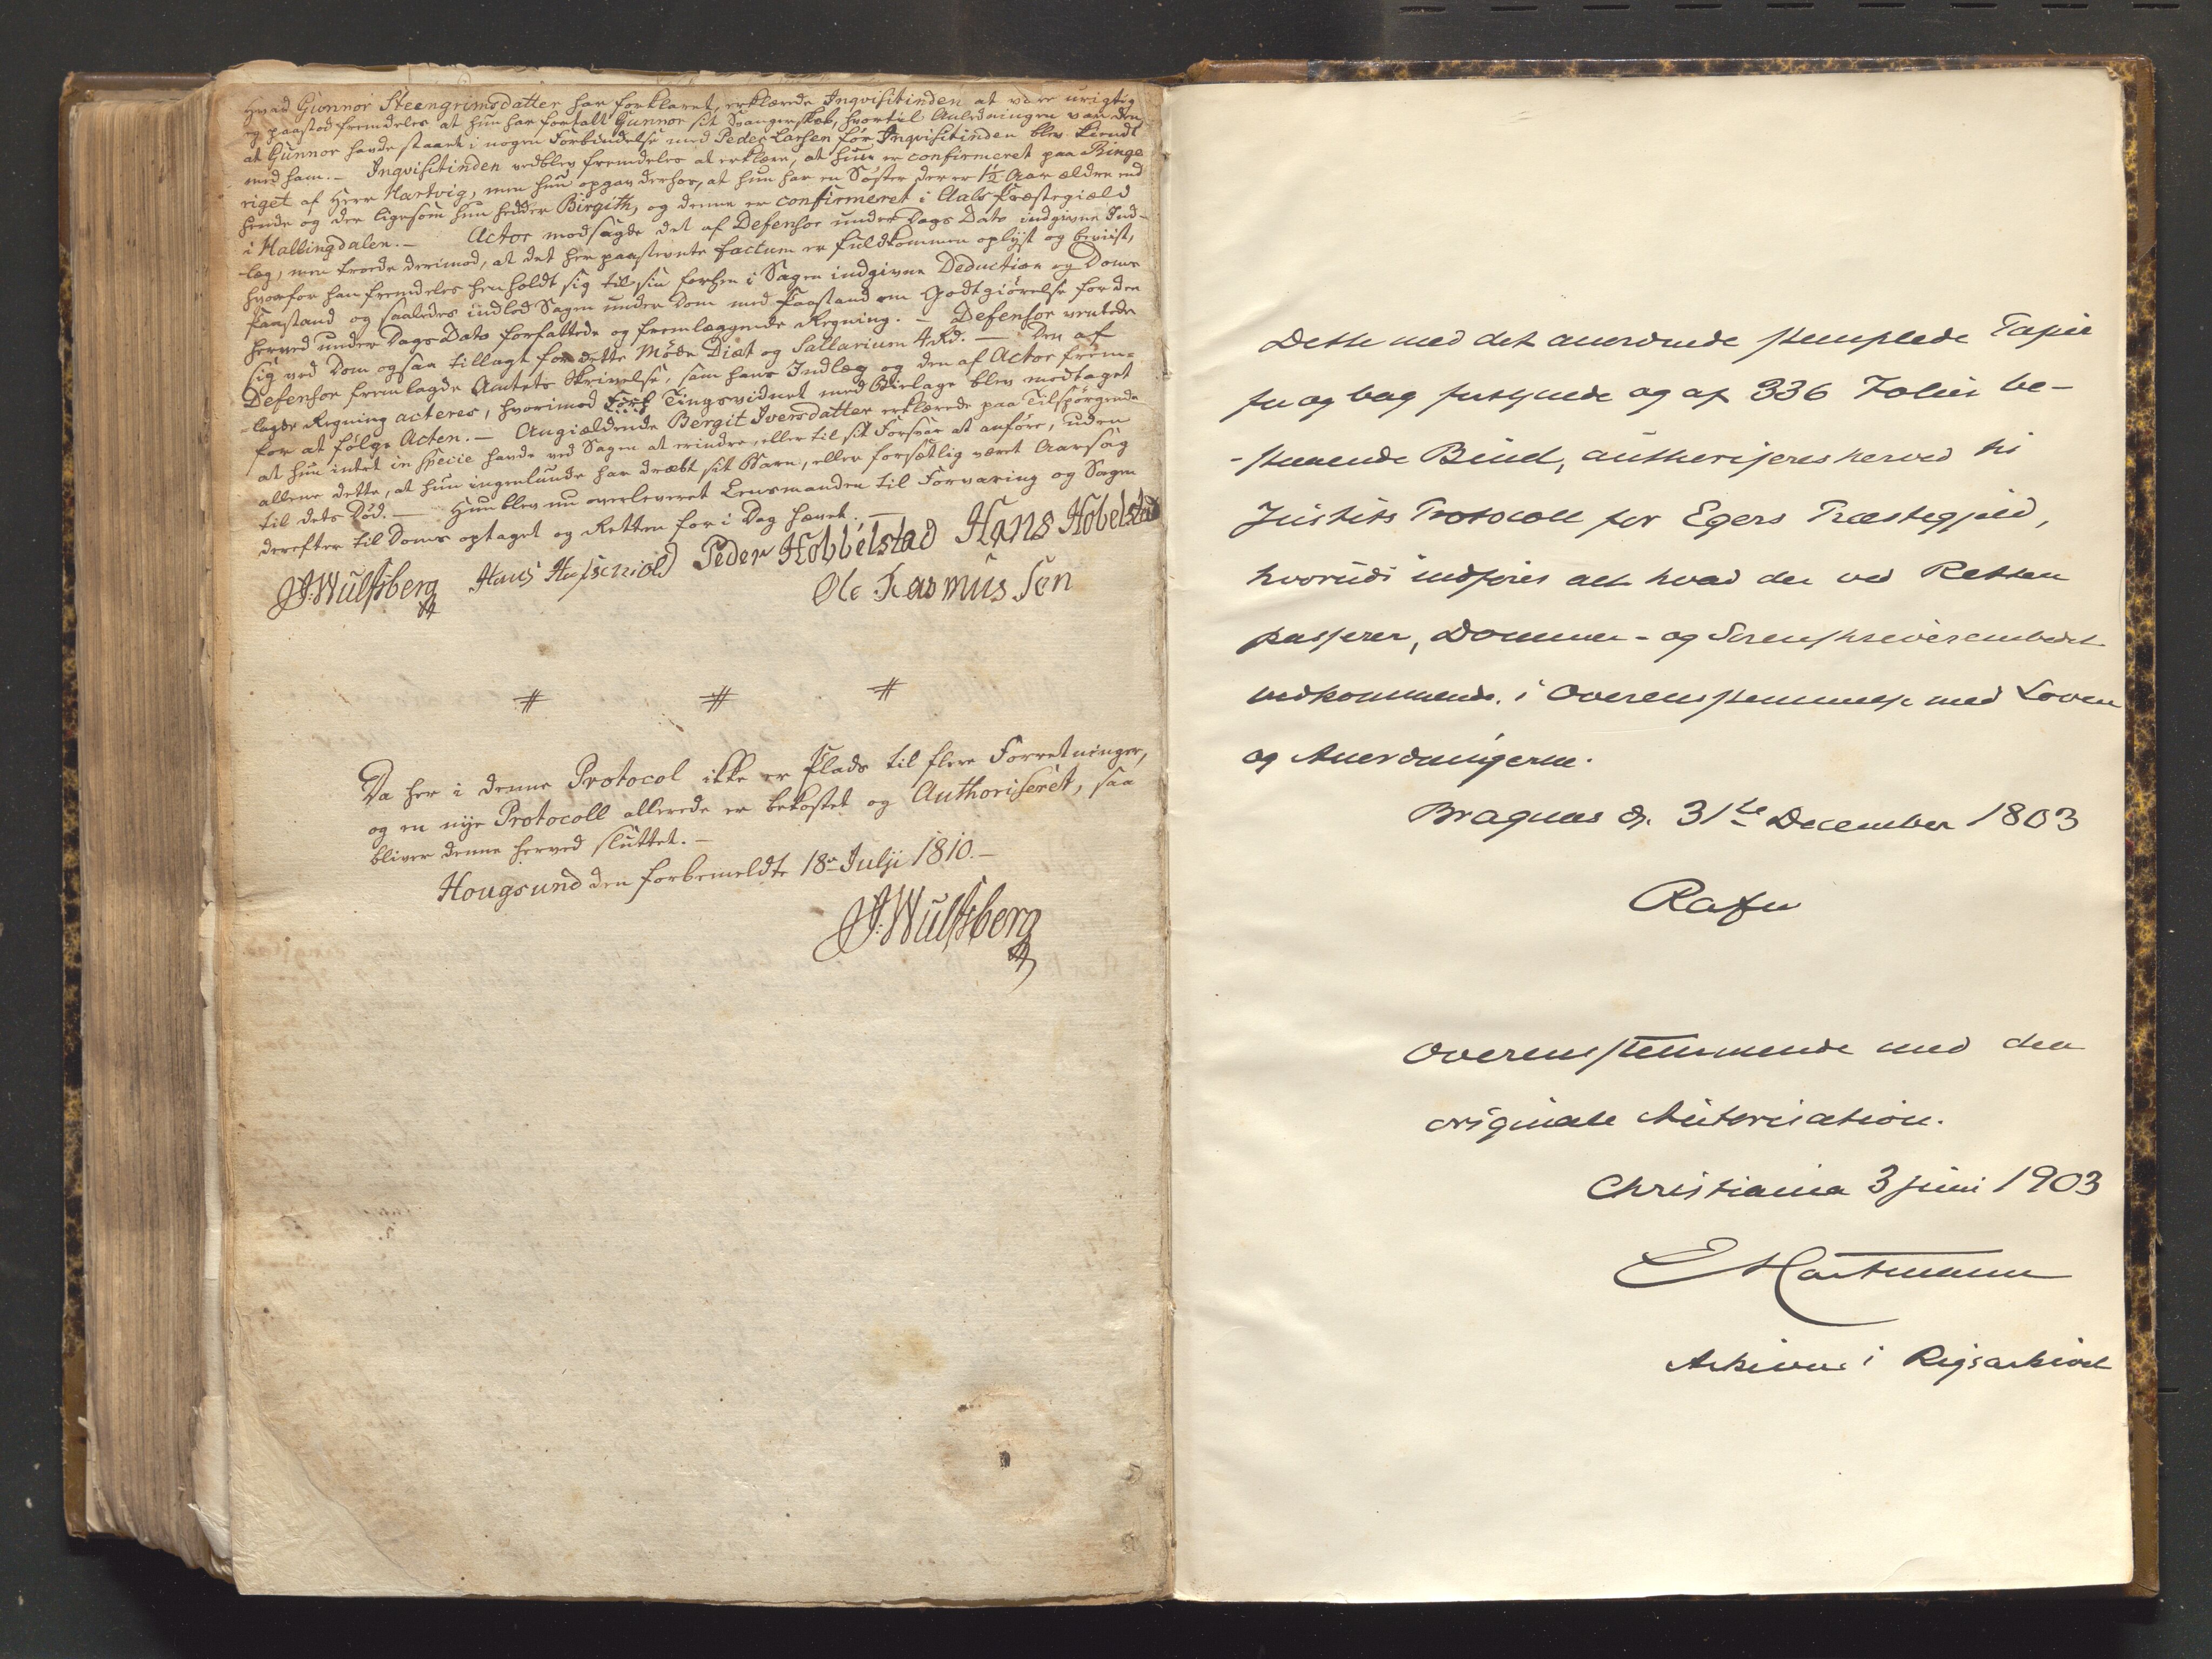 Hvad Gunnor Steengrimsdatter har forklaret, erklærede Inqvisitinden at være urigtig
og paastod fremdeles at hun har fortalt Gunnor sit Svangerskab, hvortil Anledningen var den,
at Gunnor havde staaet i nogen Forbindelse med Peder Larsen før Inqvisitinden blev kiendt
med ham. – Inqvisitinden vedblev fremdeles at erklære, at hun er confirmeret paa Ringe
riget af Herr Hartvig, men hun opgav derhos, at hun har en Søster der er 1½ Aar ældre end
hende og der ligesom hun hedder Birgith, og denne er confirmeret i Aals Præstegield
i Hallingdalen. – Actor modsagde det af Defensor under Dags Dato indgivne Ind-
-læg, men troede derimod, at det her paastevnte factum er fuldkommen oplyst og beviist,
hvorfor han fremdeles henholdt sig til sin forhen i Sagen indgivne Deduction og Doms
Paastand og saaledes indlod Sagen under Dom med Paastand om Godtgiørelse for den
herved under Dags Dato forfattede og fremlæggende Regning. – Defensor ventede
sig ved Dom ogsaa tillagt for dette Møde Diæt og Sallarium 4 Rd. – Den af
Defensor fremlagde Amtets Skrivelse, som hans Indlæg og den af Actor frem-
-lagde Regning acteres, hvorimod Tingsvidnet med Bielage blev modtaget
for at følge Acten. – Angieldende Bergit Iversdatter erklærede paa Tilspørgende
at hun intet in specie havde ved Sagen at erindre, eller til sit Forsvar at anføre, uden
allene dette, at hun ingenlunde har dræbt sit Barn, eller forsetlig været Aarsag
til dets Død. – Hun blev nu overleveret Lensmanden til Forvaring og Sagen
derefter til Doms optaget og Retten for i Dag hævet. –
J. Wulfsberg Hans Peder Hobbelstad Hans Hobelstad
Ole Rasmus Sen
# # #
Da her i denne Protocol ikke er Plads til flere Forretninger,
og en nye Protocoll allerede er bekostet og Authoriseret, saa
bliver denne herved sluttet. –
Hougsund den forbemeldte 18de Julii 1810. –
J. Wulfsberg
Dette med det anordnede stemplede Papir
for og bag forsynede og af 336 Folier be-
-staaende Bind, authoriseres herved til
Justits Protocoll for Egers Præstegjeld,
hvorudi indføres alt hvad der ved Retten
passerer, Dommer- og Sorenskriverembedet
vedkommende, i Overensstemmelse med Loven
og Anordningerne.
Bragnæs d. 31te December 1803
Rafn
Overensstemmende med den
originale Autorisation.
Christiania 3 juni 1903
E Hartmann
Arkivar i Rigsarkivet